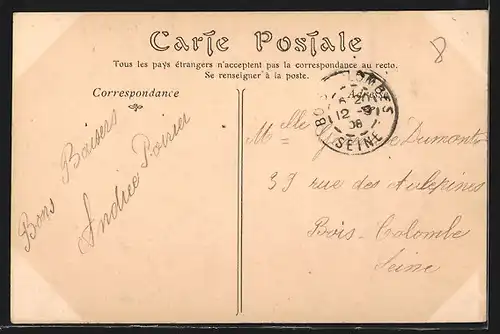 Carte Postale
Tous les pays étrangers n'acceptent pas la correspondance au recto.
Se renseigner à la poste.
8
Correspondance
BOIS COLOMBES
12 - 9
08
SEINE
Bons Baisers
Andrée Poirier
Melle Dumont
39 rue des Aubépines
Bois-Colombe
Seine